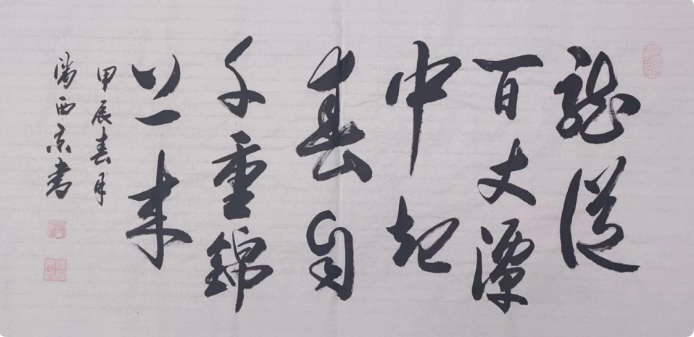 龍從
百丈潭
中起
春自
千重錦
上来
甲辰春月
西京書